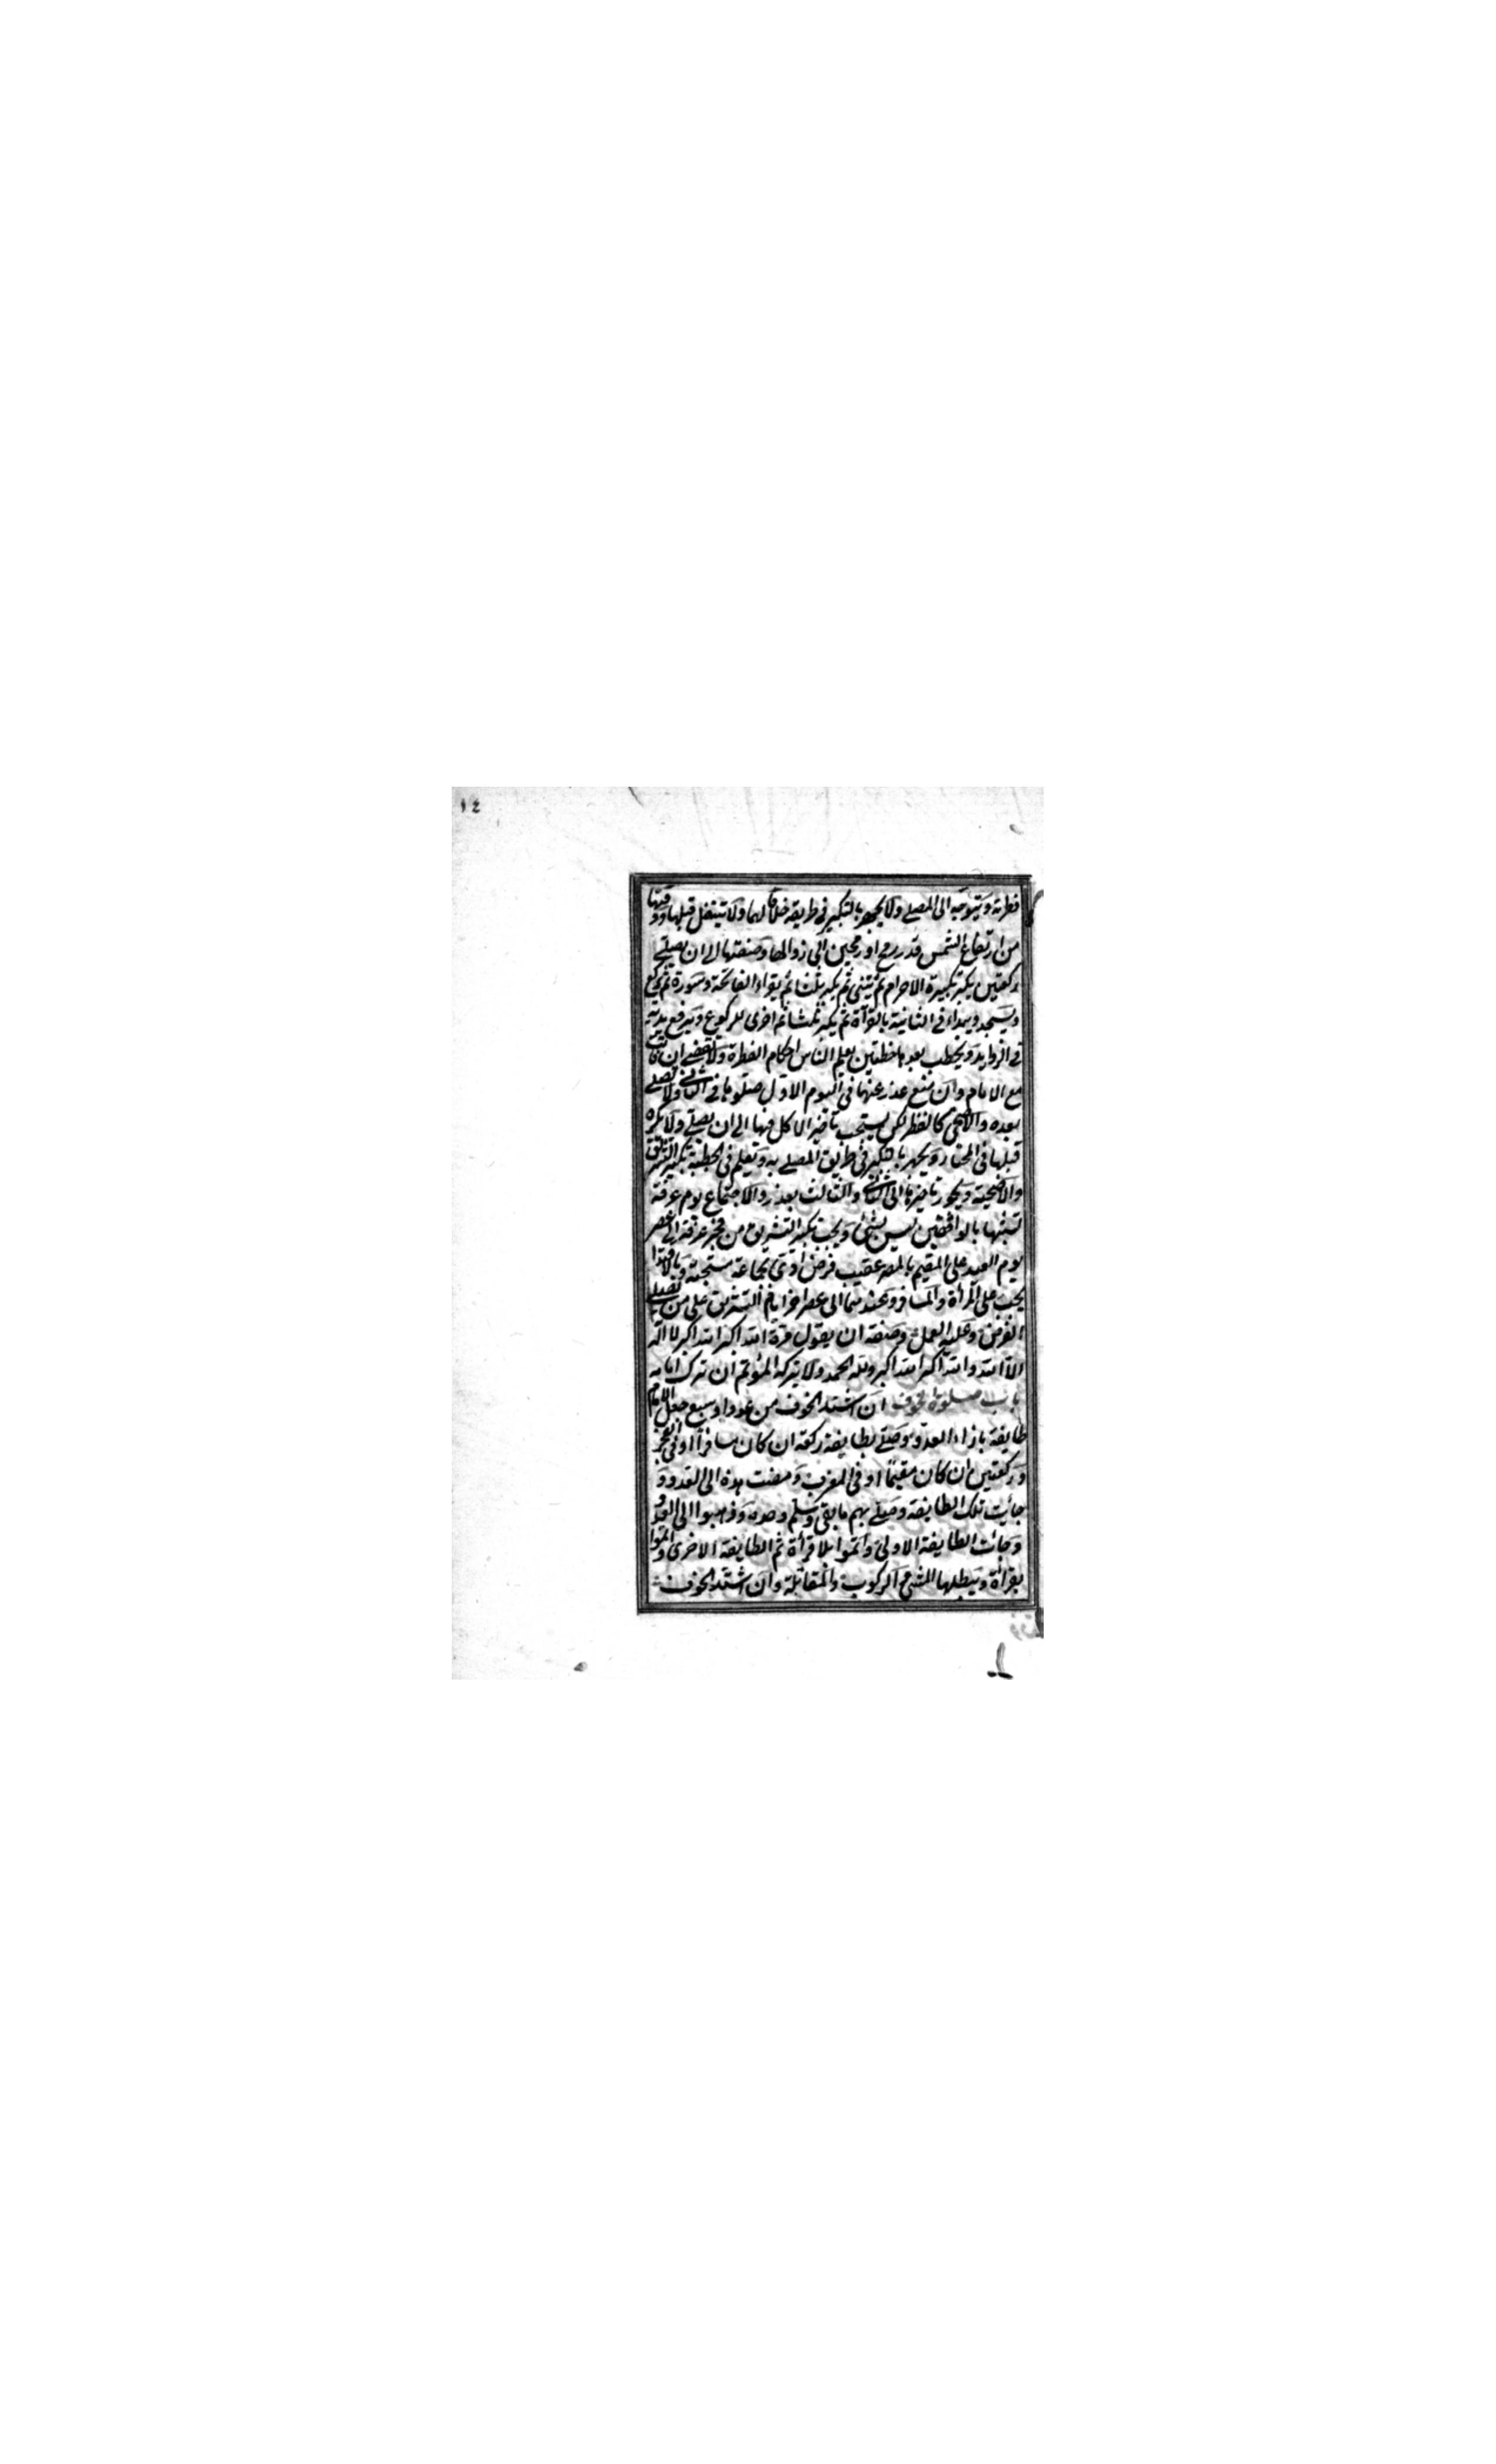 ١٤
فطرته ويتوجه الى المصلى ولا يجهر بالتكبير فى طريقه خلافا لهما ولا يتنفل قبلها ووقتها
من ارتفاع الشمس قدر رمح او رمحين الى زوالها وصفتها ان يصلى
ركعتين يكبر تكبيرة الاحرام ثم يثنى ثم يكبر ثلثا ثم يقراء الفاتحة وسورة ثم يركع
ويسجد ويبداء فى الثانية بالقرآة ثم يكبر ثلثا ثم اخرى للركوع ويرفع يديه
فى الزوايد ويخطب بعدها خطبتين يعلم الناس احكام الفطرة ولا تقضى ان فاتت
مع الامام وان منع عذر عنها فى اليوم الاول صلوها فى الثانى ولا تصلى
بعده والاضحى كالفطر لكن يستحب تاخير الاكل فيها الى ان يصلى ولا يكره
قبلها فى المختار ويجهر بالتكبير فى طريق المصلى به ويعلم فى الخطبة تكبير التشريق
والاضحية ويجوز تاخيرها الى الثانى والثالث بعذر والاجتماع يوم عرفة
تشبها بالواقفين ليس بشئ ويجب تكبير التشريق من فجر عرفة الى عصر
يوم العيد على المقيم بالمصر عقيب فرض ادى بجماعة مستحبة وبالاقتدا
يجب على المرأة والمسافر وعندهما الى عصر اخر ايام التشريق على من يصلى
الفرض وعليه العمل وصفته ان يقول مرة الله اكبر الله اكبر لا اله
الا الله والله اكبر الله اكبر ولله الحمد ولا يتركه المؤتم ان ترك امامه
باب صلوة الخوف ان اشتد الخوف من عدو او سبع جعل الامام
طايفة بازاء العدو وصلى بطايفة ركعة ان كان مسافرا او فى الفجر
وركعتين ان كان مقيما او فى المغرب ومضت هذه الى العدو و
جائت تلك الطايفة وصلى بهم ما بقى وسلم وحده وذهبوا الى العدو
وجائت الطايفة الاولى واتموا بلا قرأة ثم الطايفة الاخرى واتموا
بقرأة ويبطلها المشى والركوب والمقاتلة وان اشتد الخوف